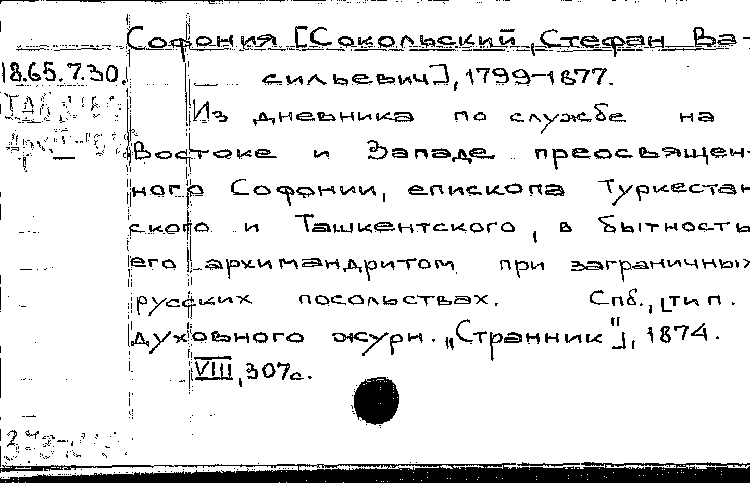 Софония [Сокольский, Стефан Ва-
18.65.7.30. сильевич], 1799-1877.
Из дневника по службе на
Востоке и Западе преосвящен-
ного Софонии, епископа Туркестан
ского и Ташкентского, в бытность
его архимандритом при заграничных
русских посольствах. Спб., [тип.
духовного журн. „Странник"], 1874.
VIII, 307с.